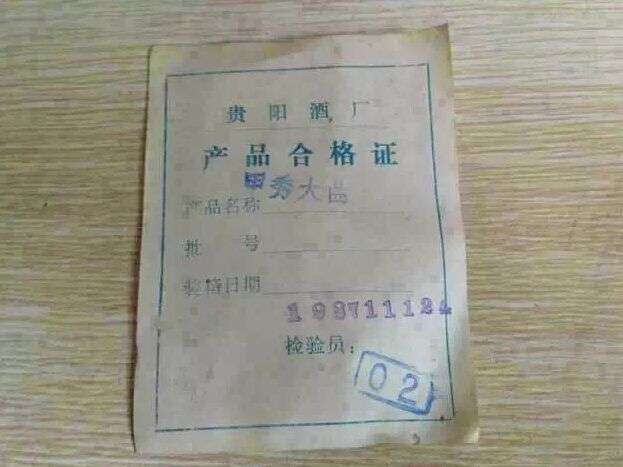 贵阳酒厂
产品合格证
产品名称 甲秀大曲
批号
装瓶日期
198711124
检验员：
02